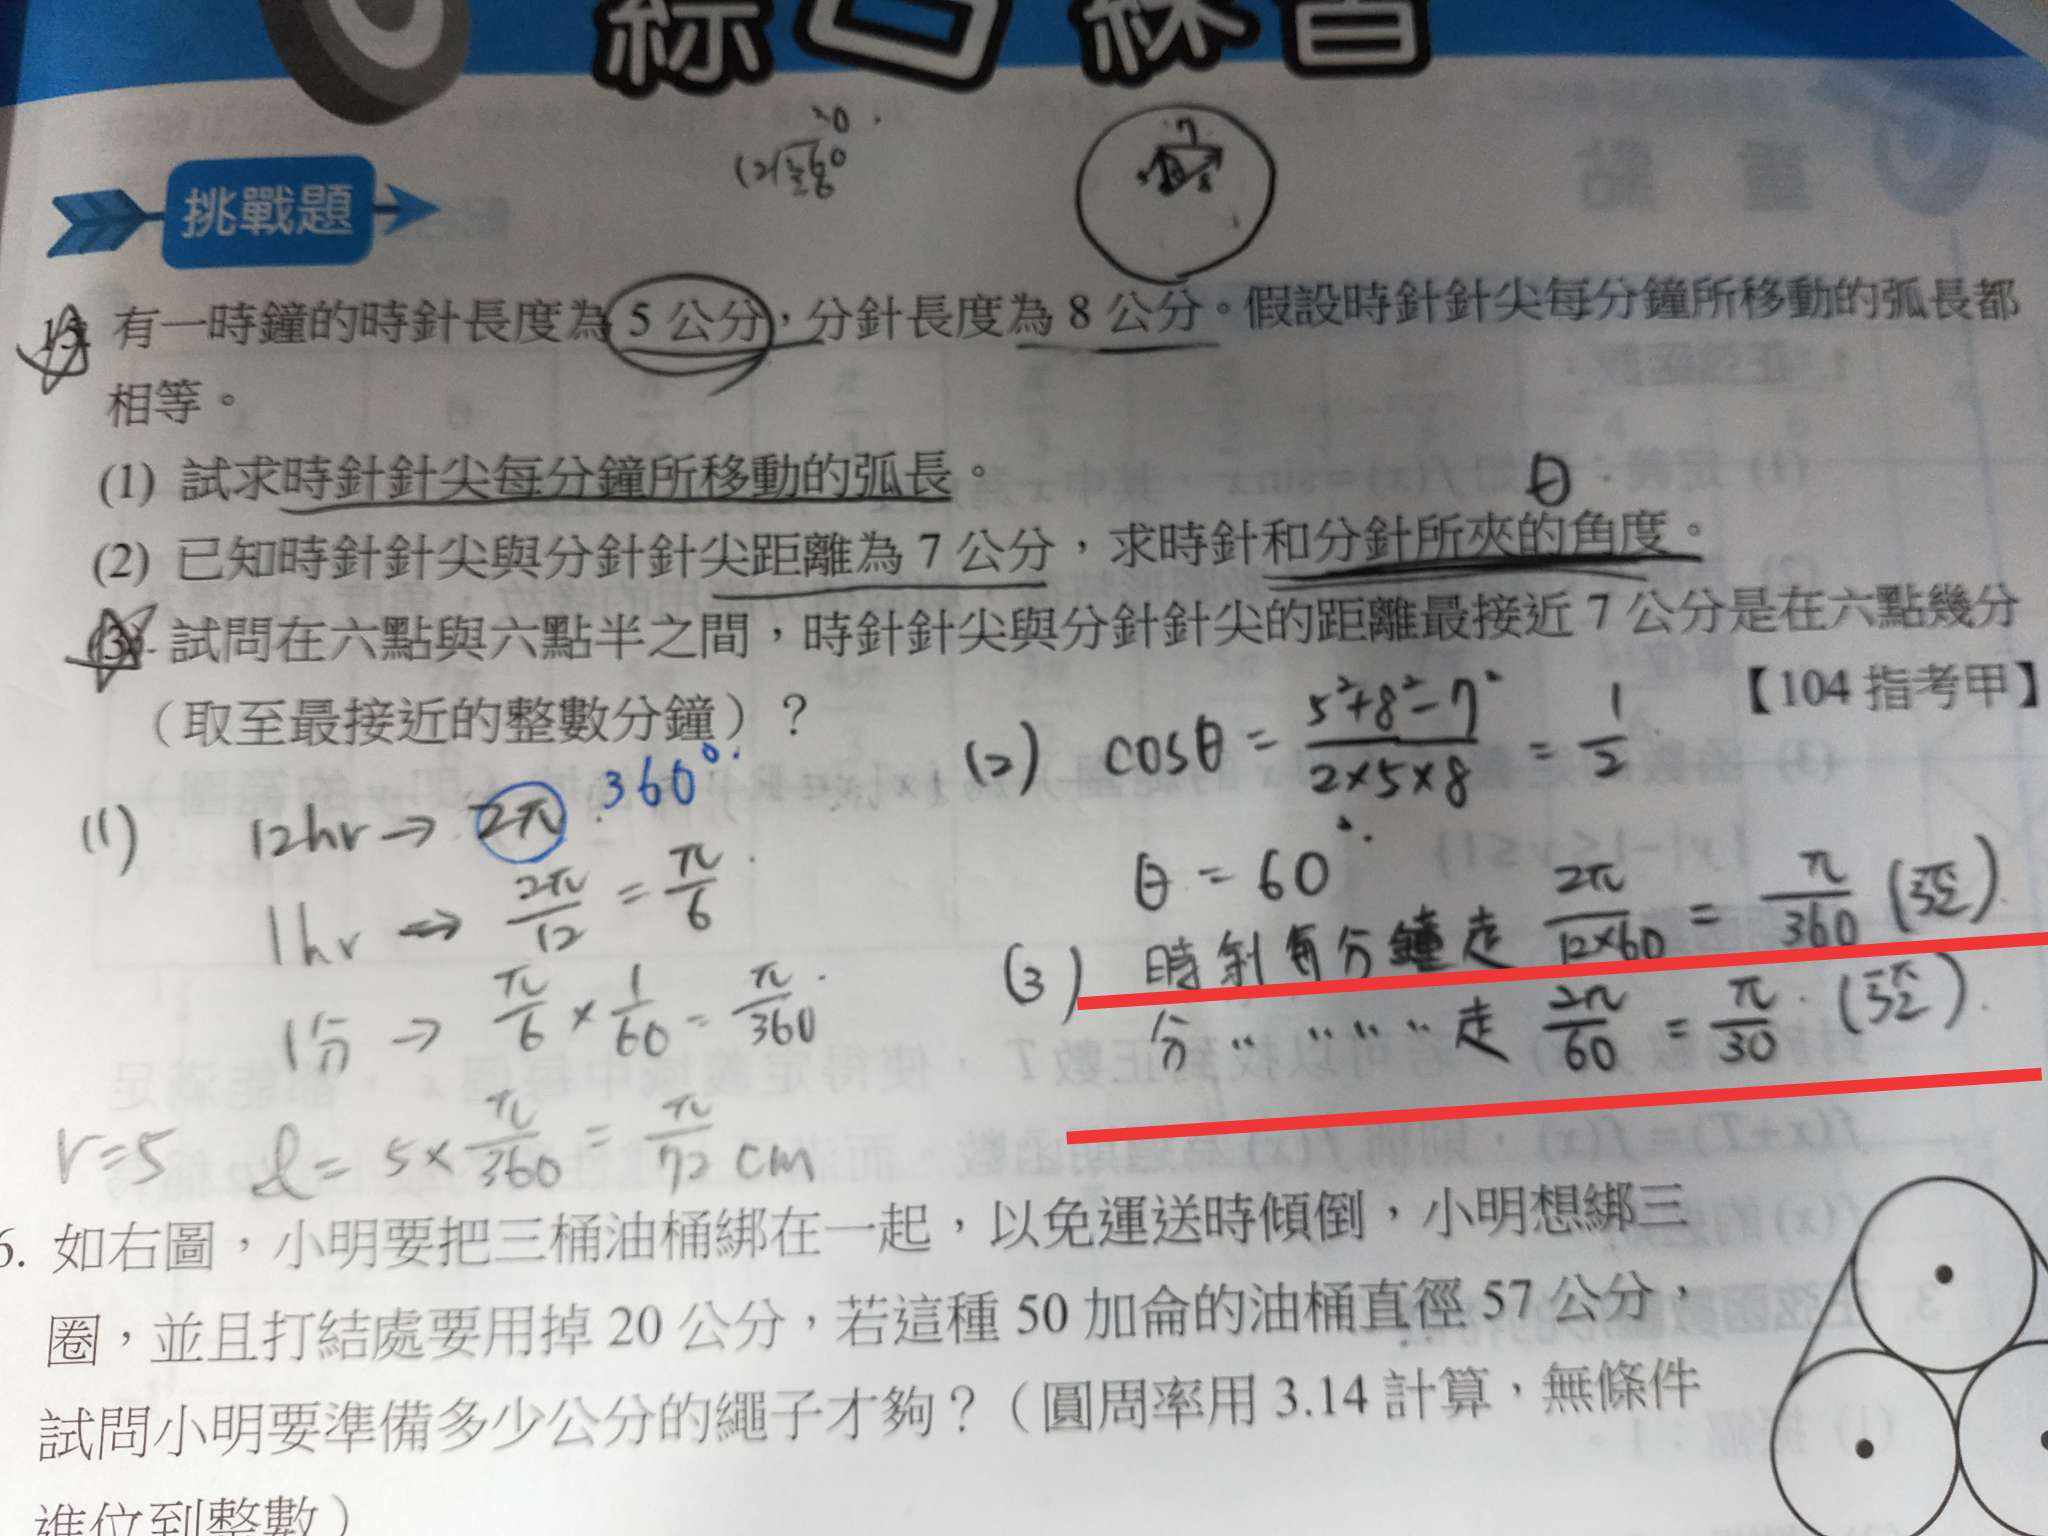 綜合練習
挑戰題
有一時鐘的時針長度為 5 公分，分針長度為 8 公分。假設時針針尖每分鐘所移動的弧長都
相等。
(1) 試求時針針尖每分鐘所移動的弧長。
θ
(2) 已知時針針尖與分針針尖距離為 7 公分，求時針和分針所夾的角度。
(3) 試問在六點與六點半之間，時針針尖與分針針尖的距離最接近 7 公分是在六點幾分
（取至最接近的整數分鐘）？
【104 指考甲】
(1) 12hr → 2π 360°
1hr → 2π/12 = π/6
1分 → π/6 × 1/60 = π/360
r=5 ℓ= 5×π/360 = π/72 cm
(2) cosθ = (5²+8²-7²)/(2×5×8) = 1/2
θ = 60°
(3) 時針每分鐘走 2π/(12×60) = π/360 (弳)
分 〃 〃 〃 〃 走 2π/60 = π/30 (弳)
6. 如右圖，小明要把三桶油桶綁在一起，以免運送時傾倒，小明想綁三
圈，並且打結處要用掉 20 公分，若這種 50 加侖的油桶直徑 57 公分，
試問小明要準備多少公分的繩子才夠？（圓周率用 3.14 計算，無條件
進位到整數）